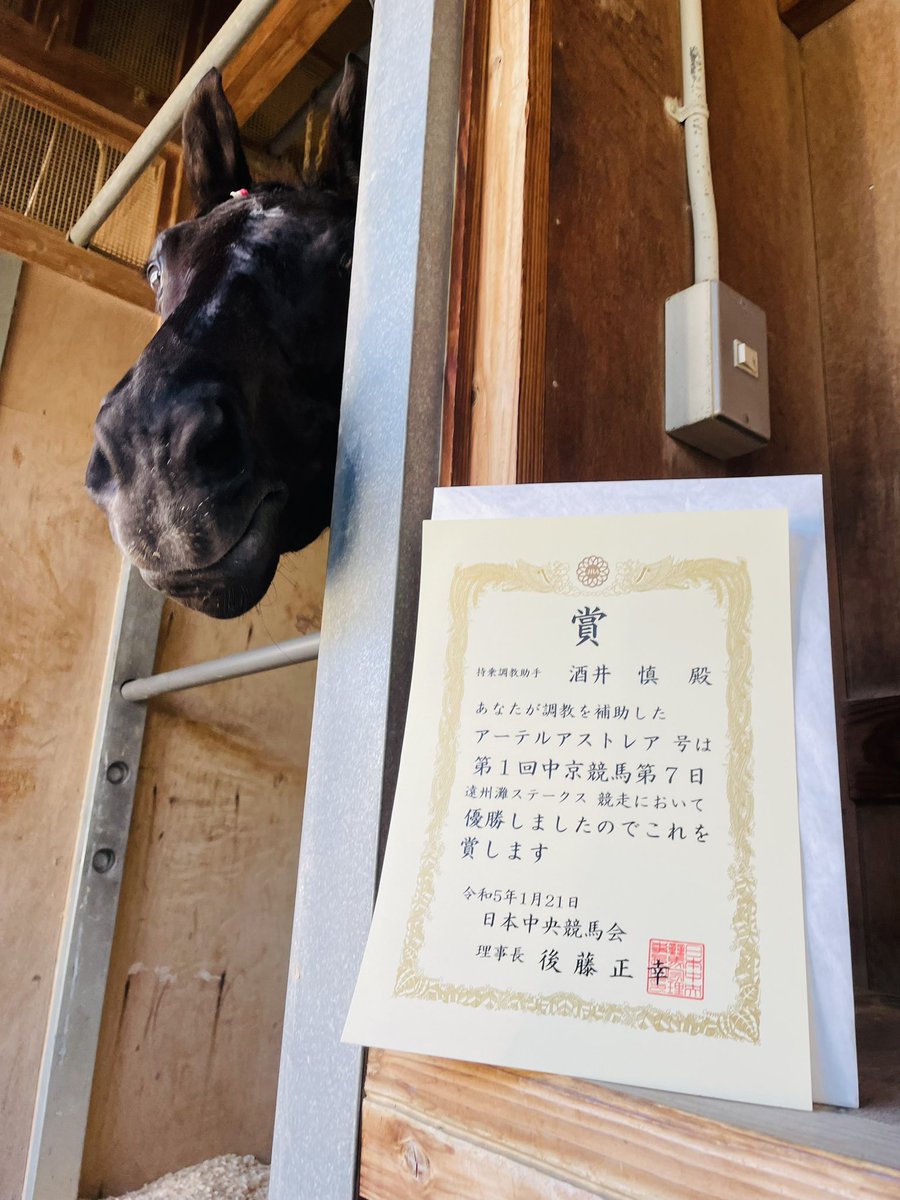 JRA
賞
持乗調教助手 酒井 慎 殿
あなたが調教を補助した
アーテルアストレア 号は
第1回中京競馬第7日
遠州灘ステークス 競走において
優勝しましたのでこれを
賞します
令和5年1月21日
日本中央競馬会
理事長 後藤正幸